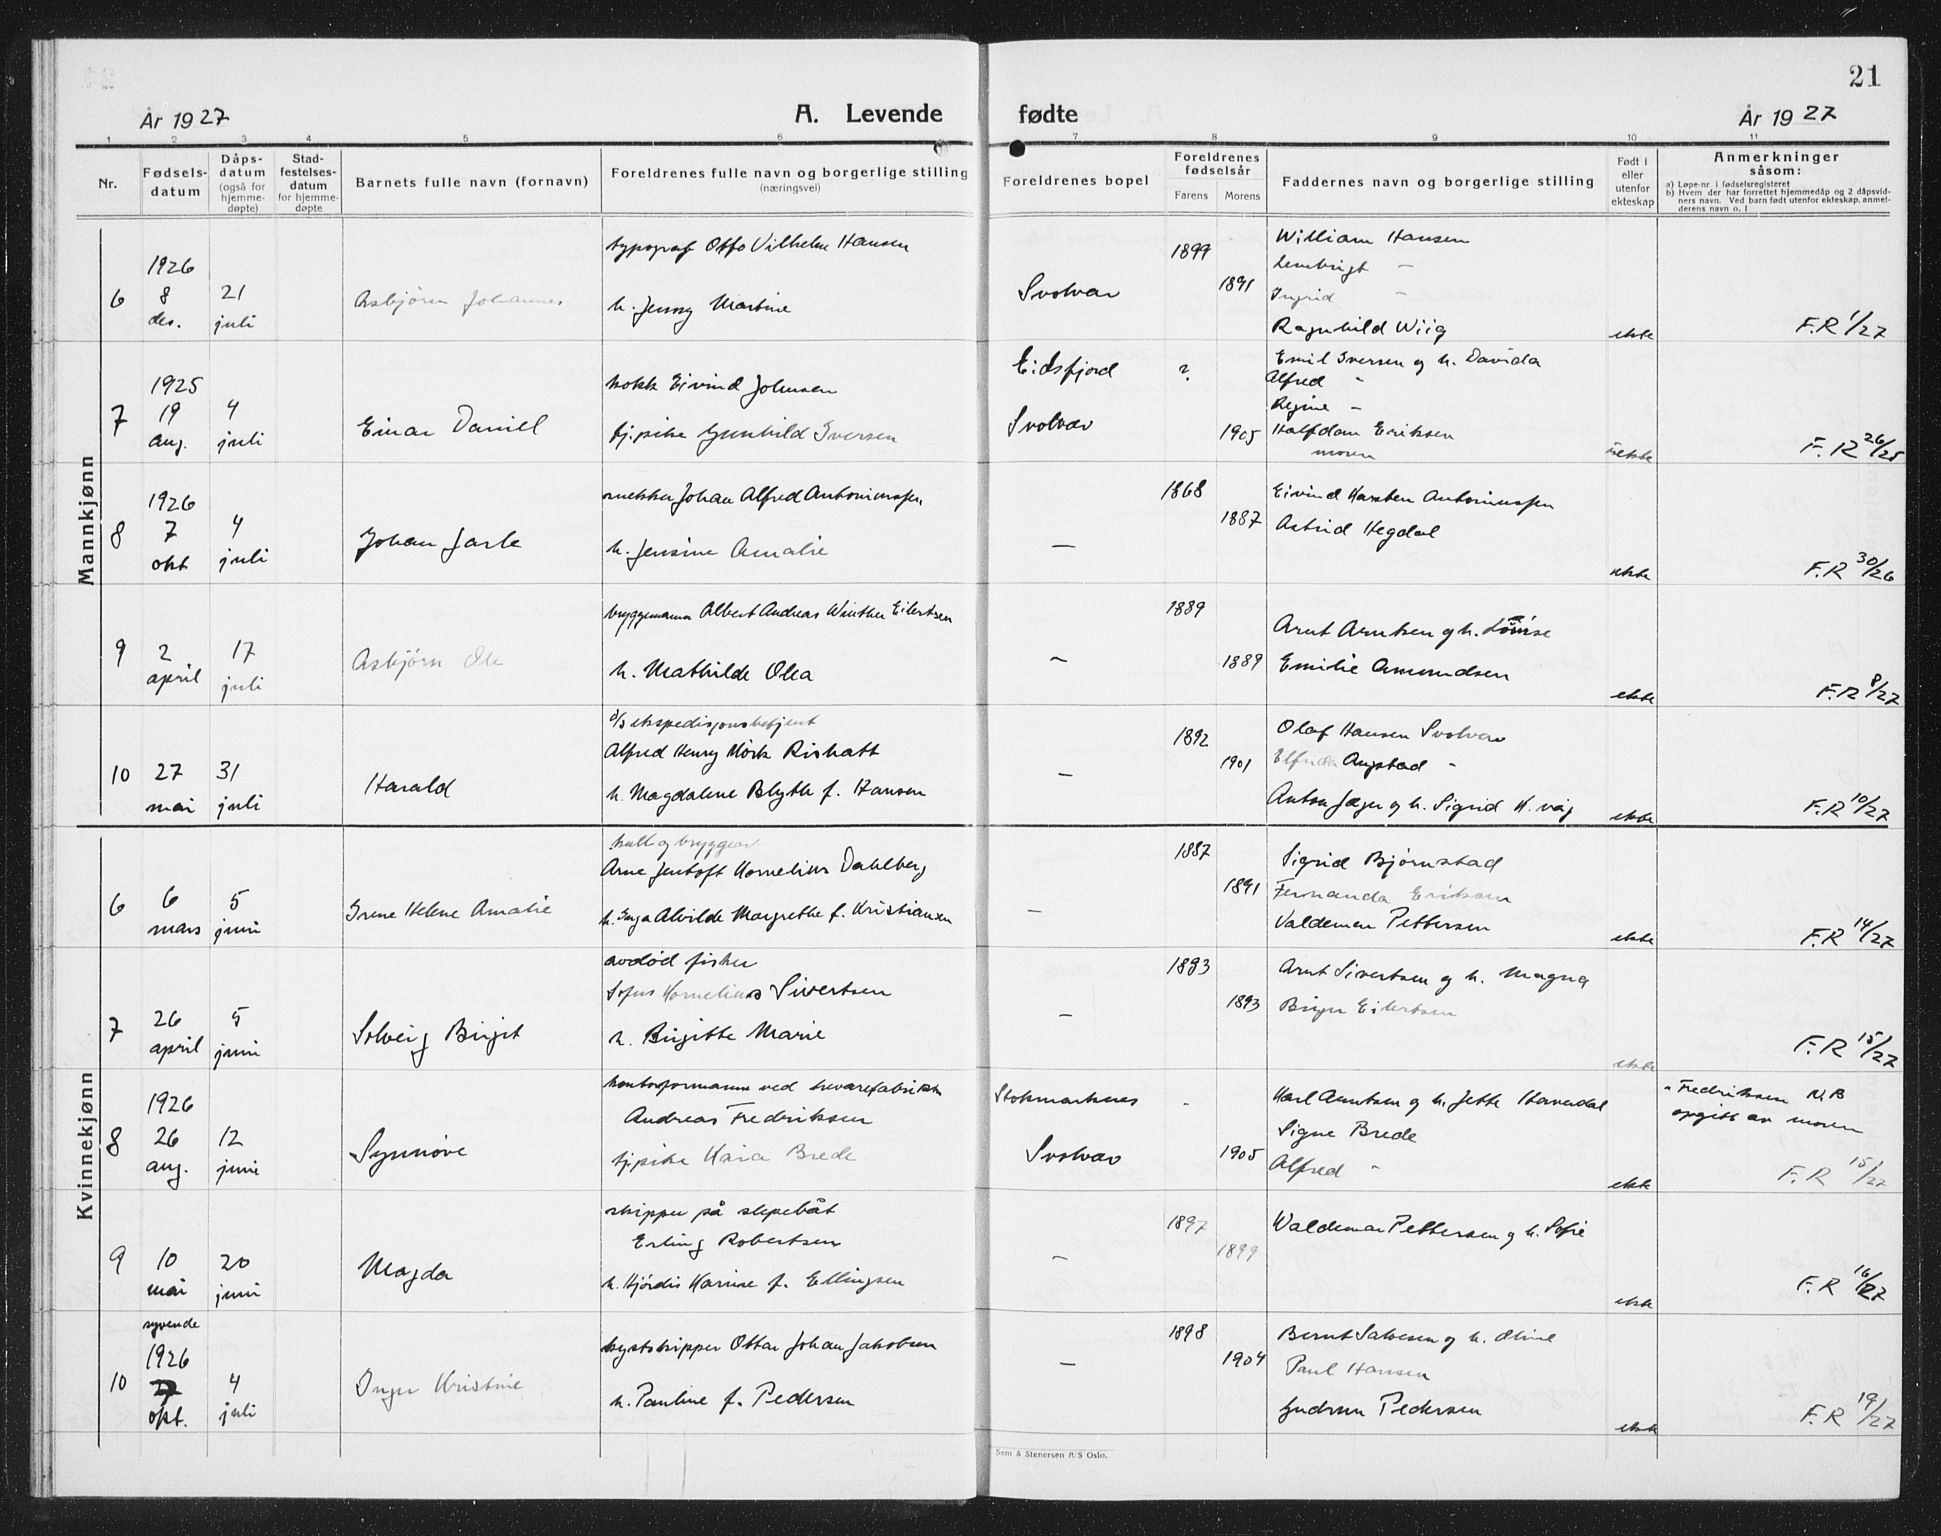 21
År 1927
A. Levende
fødte
År 1927
1 2 3 4 5 6 7 8 9 10 11
Nr.
Fødsels-
datum
Dåps-
datum
(også for
hjemme-
døpte)
Stad-
festelses-
datum
for hjemme-
døpte
Barnets fulle navn (fornavn)
Foreldrenes fulle navn og borgerlige stilling
(næringsvei)
Foreldrenes bopel
Foreldrenes
fødselsår
Farens Morens
Faddernes navn og borgerlige stilling
Født i
eller
utenfor
ekteskap
Anmerkninger
såsom:
a) Løpe-nr. i fødselsregisteret
b) Hvem der har forrettet hjemmedåp og 2 dåpsvid-
ners navn. Ved barn født utenfor ekteskap, anmel-
derens navn o. l
Mannkjønn
6
1926
8
des.
21
juli
Asbjørn Johannes
typograf Otto Vilhelm Hansen
h. Jenny Martine
Svolvær
1899
1891
William Hansen
Lembrigt —
Ingrid —
Ragnhild Wiig
ekte
F.R 1/27
7
1925
19
aug.
4
juli
Einar Daniel
kokk Eivind Johnsen
tj.pike Gunhild Iversen
Eidsfjord
Svolvær
?
1905
Emil Iversen og h. Davida
Alfred "
Regine —
Halfdan Eriksen
moren
uekte
F.R 26/25
8
1926
7
okt
4
juli
Johan Jarle
snekker Johan Alfred Antoniussen
h. Jensine Amalie
—
1868
1887
Eivind Karsten Antoniussen
Astrid Hegdal
ekte
F.R 30/26
9
2
april
17
juli
Asbjørn Ole
bryggemann Albert Andreas Winther Eilertsen
h. Mathilde Olea
—
1889
1889
Arnt Arntsen og h. Lovise
Emilie Amundsen
ekte
F.R 8/27
10
27
mai
31
juli
Harald
d/s ekspedisjonsbetjent
Alfred Henry Mörk Rishatt
h. Magdalene Blytte f. Hansen
—
1892
1901
Olaf Hansen Svolvær
Elfrida Angstad "
Anton Jæger og h. Sigrid K. våg
ekte
F.R 10/27
Kvinnekjønn
6
6
mars
5
juni
Irene Helene Amalie
kull og bryggearb
Arne Jentoft Kornelius Dahlberg
h. Inga Alvilde Margrethe f. Kristiansen
—
1887
1891
Sigrid Bjørnstad
Fernanda Eriksen
Valdemar Pettersen
ekte
F.R 14/27
7
26
april
5
juni
Solveig Birgit
avdød fisker
Sofus Kornelius Sivertsen
h. Birgitte Marie
—
1893
1893
Arnt Sivertsen og h. Magna
Birger Eilertsen
ekte
F.R 15/27
8
1926
26
aug.
12
juni
Synnøve
kontorformann ved trevarefabrikk
Andreas Fredriksen
tj.pike Karia Brede
Stokmarknes
Svolvær
-
1905
Karl Arntsen og h. Jette Havndal
Signe Brede
Alfred "
ekte
Fredriksen N.B
opgitt av moren
F.R 15/27
9
10
mai
20
juni
Magda
skipper på slepebåt
Erling Robertsen
h. Hjördis Karine f. Ellingsen
—
1897
1899
Waldemar Pettersen og h. Sofie
ekte
F.R 16/27
10
syvende
1926
okt.
4
juli
Inger Kristine
kystskipper Ottar Johan Jakobsen
h. Pauline f. Pedersen
—
1898
1904
Bernt Salvesen og h. Oline
Paul Hansen
Gudrun Pedersen
ekte
F.R 19/27
Sem & Stenersen A/S Oslo.